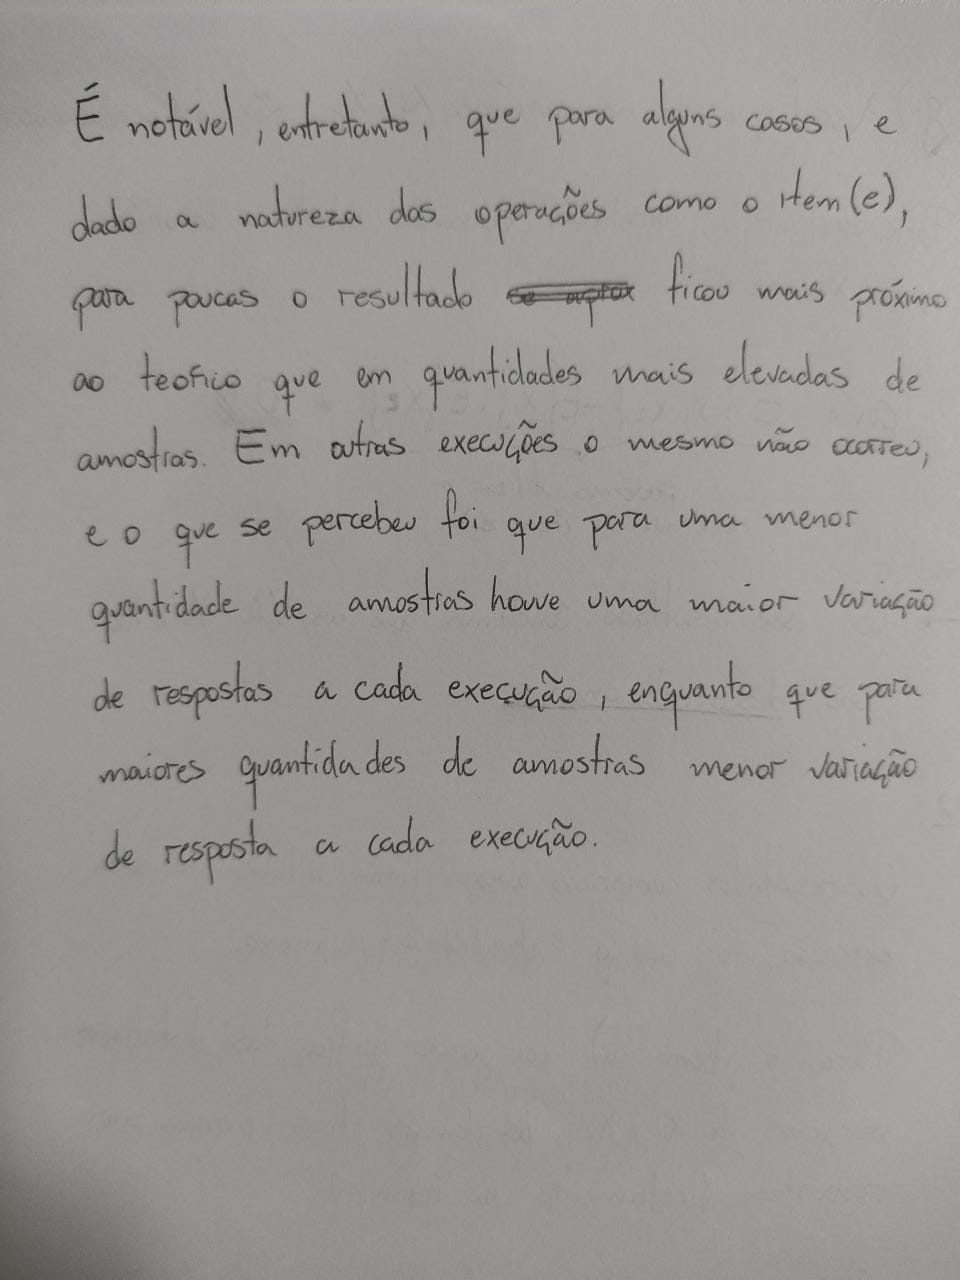 É notável, entretanto, que para alguns casos, e
dado a natureza das operações como o item (e),
para poucas o resultado ficou mais próximo
ao teorico que em quantidades mais elevadas de
amostras. Em outras execuções o mesmo não ocorreu,
e o que se percebeu foi que para uma menor
quantidade de amostras houve uma maior variação
de respostas a cada execução, enquanto que para
maiores quantidades de amostras menor variação
de resposta a cada execução.